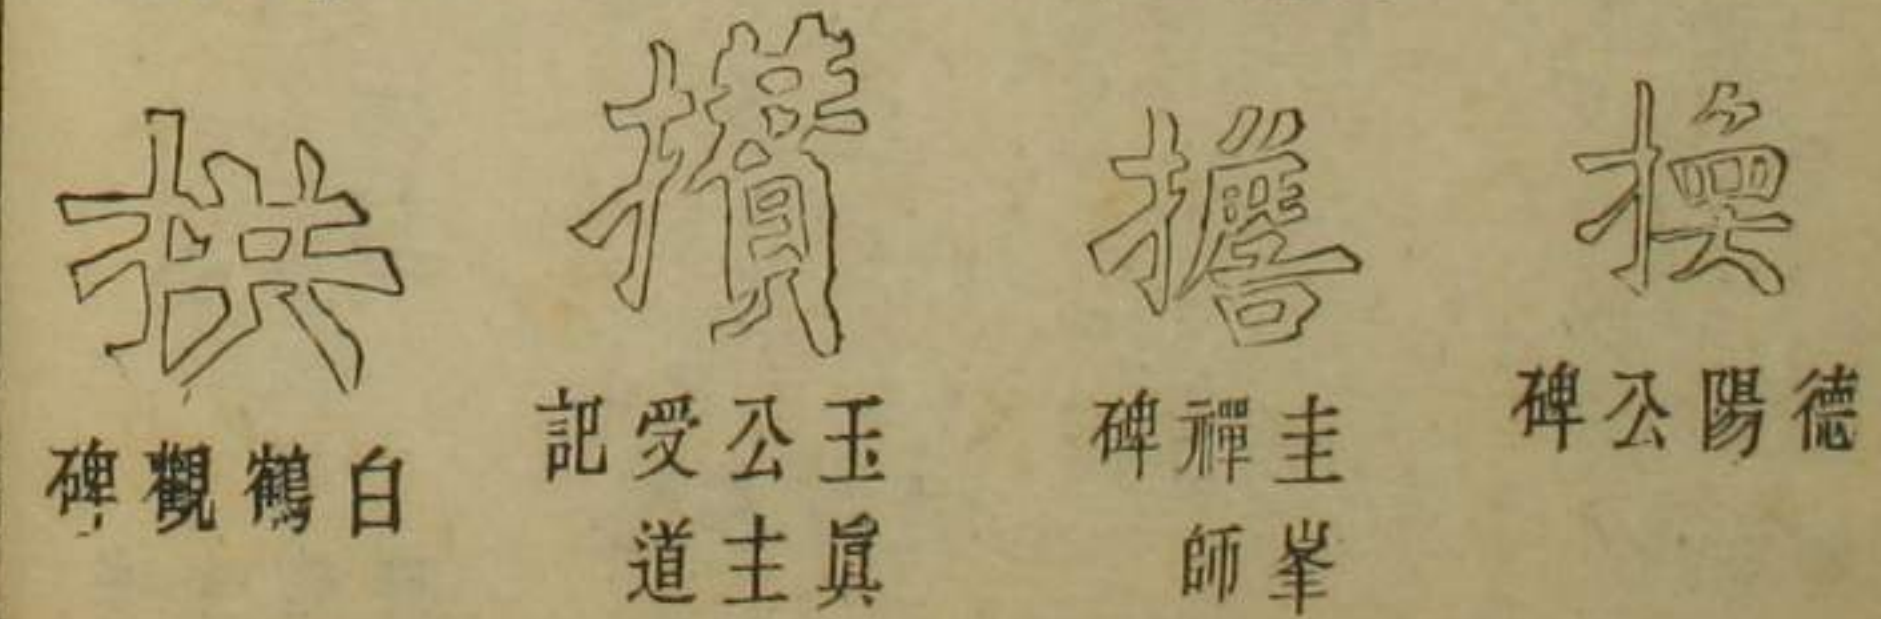 換
德陽公碑
擔
圭峯禪師碑
攢
玉眞公主受道記
拱
白鶴觀碑